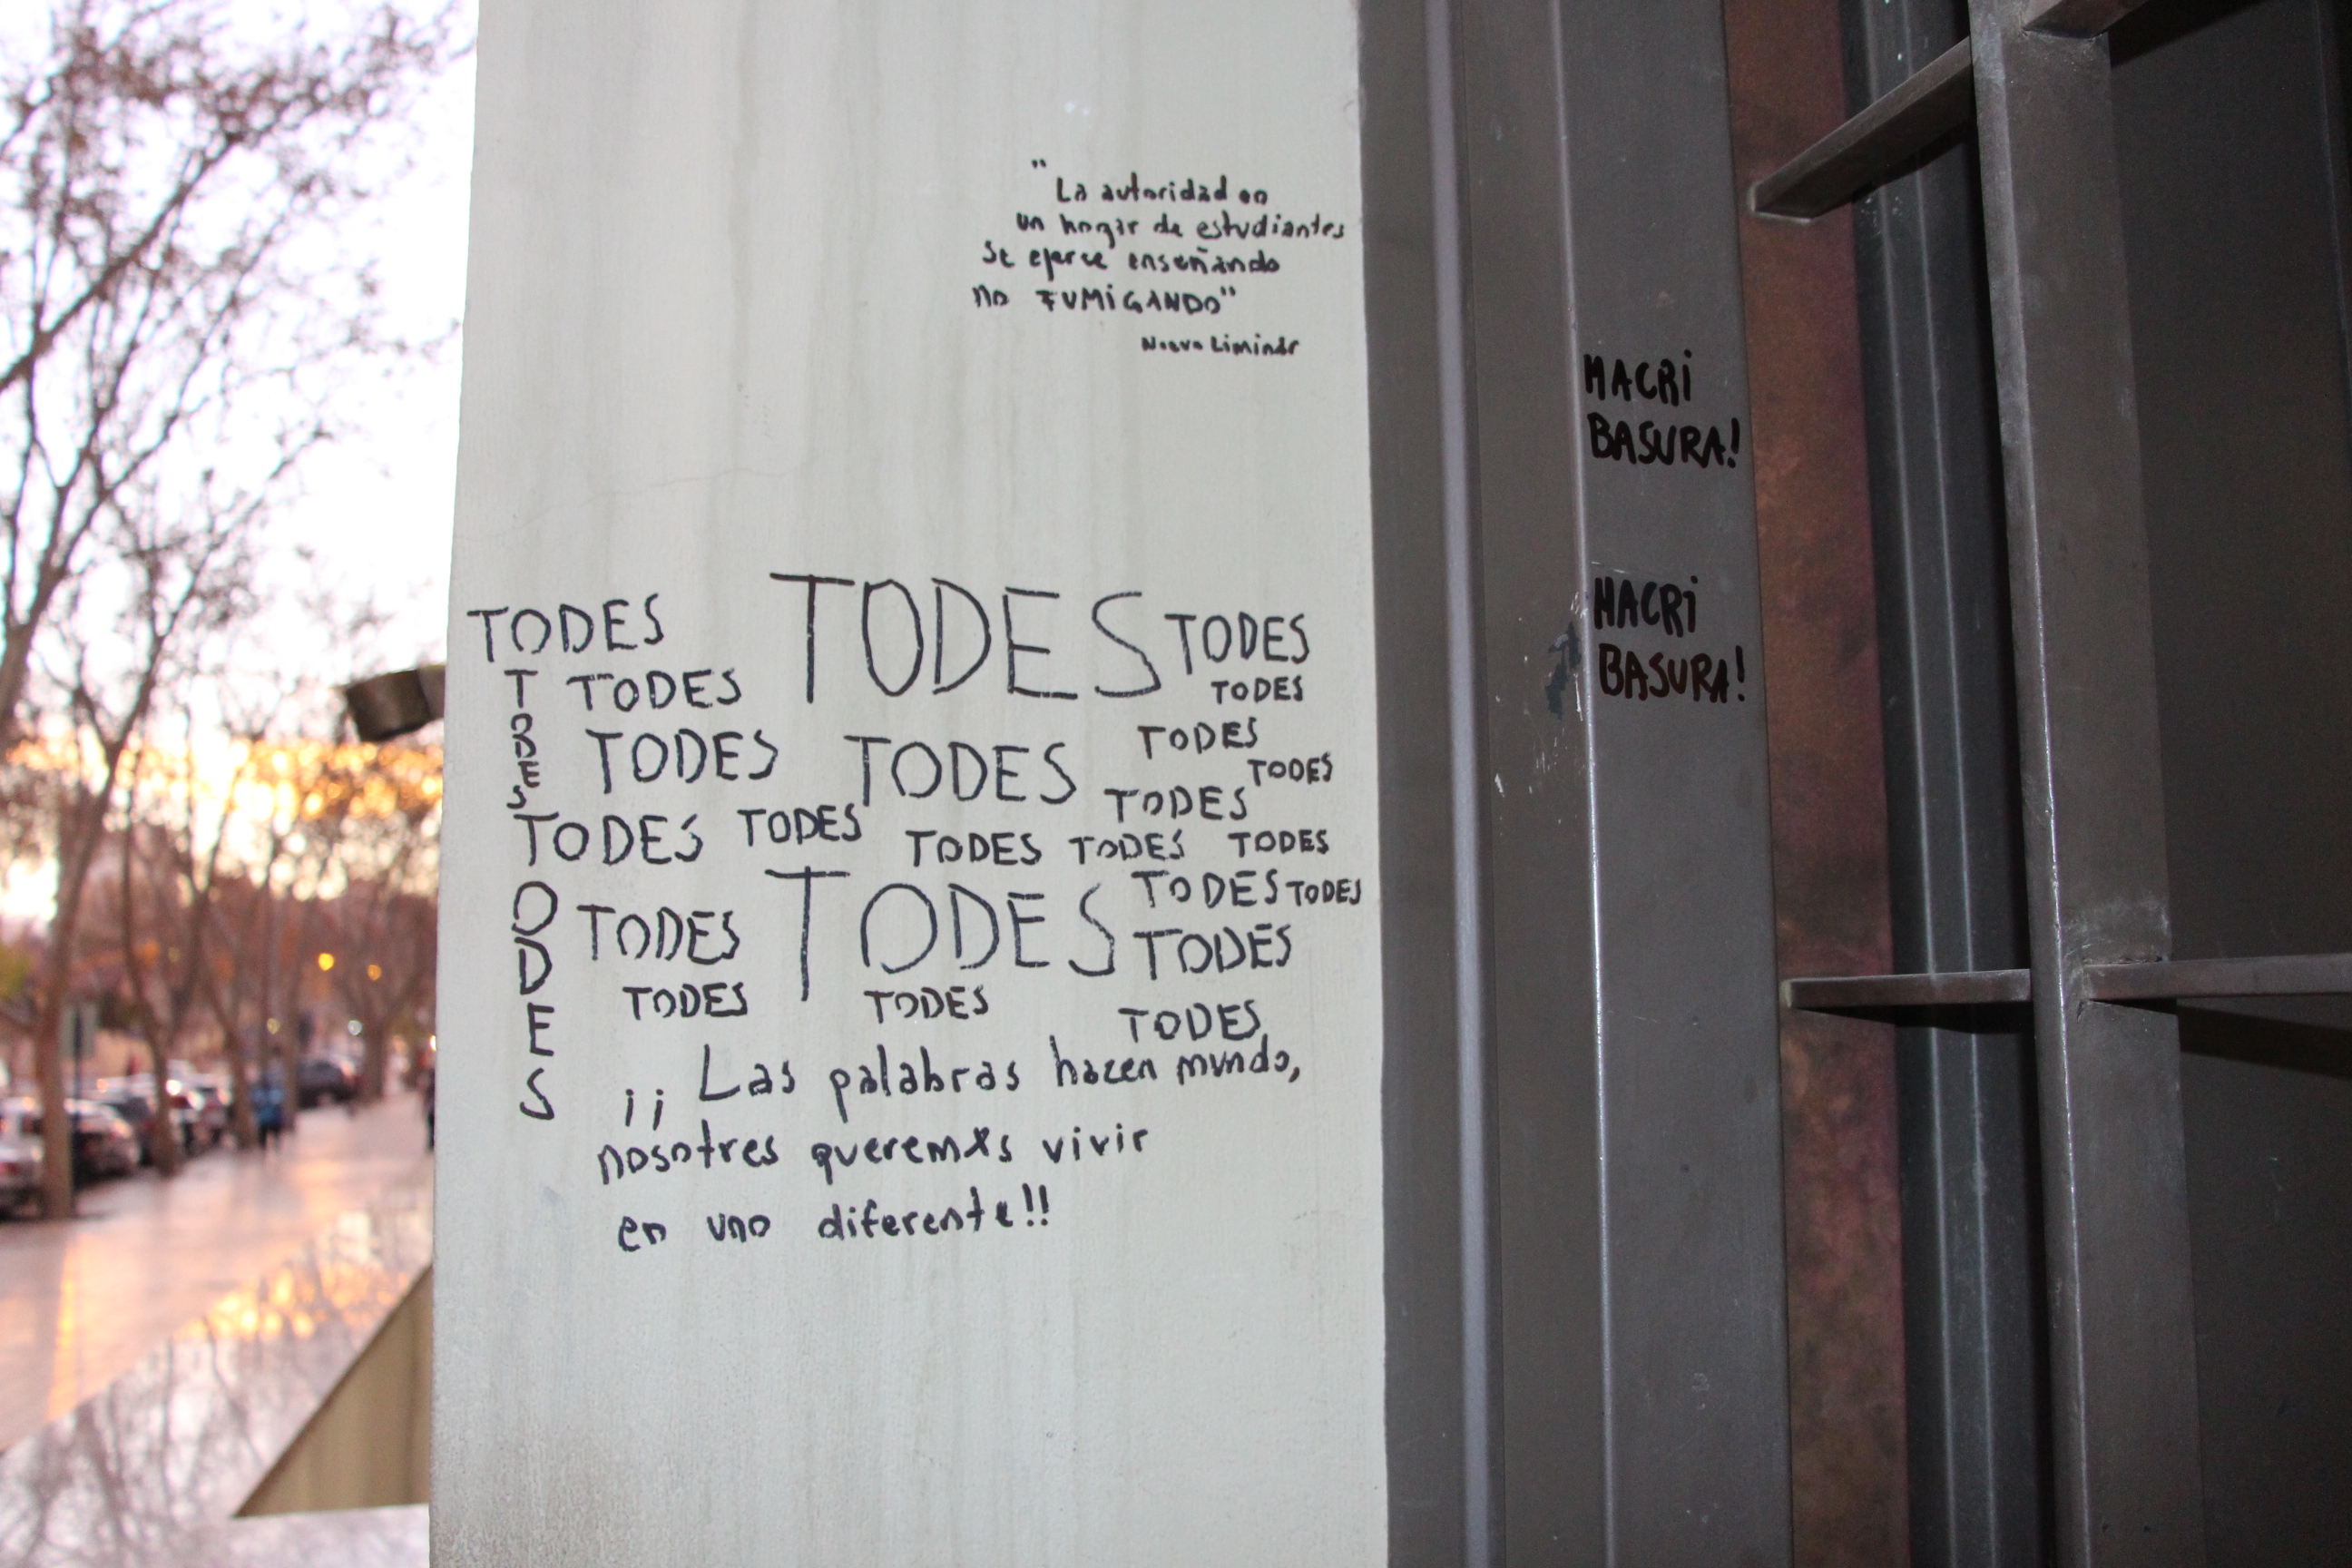 "
La autoridad en
un hogar de estudiantes
se ejerce enseñando
no FUMIGANDO"
MACRI
BASURA!
MACRI
BASURA!
TODES TODES TODES
TODES TODES
TODES
TODES TODES TODES
TODES
TODES
TODES TODES TODES TODES TODES
TODES TODES
TODES TODES TODES
TODES TODES TODES
TODES
¡¡ Las palabras hacen mundo,
nosotres queremxs vivir
en uno diferente!!